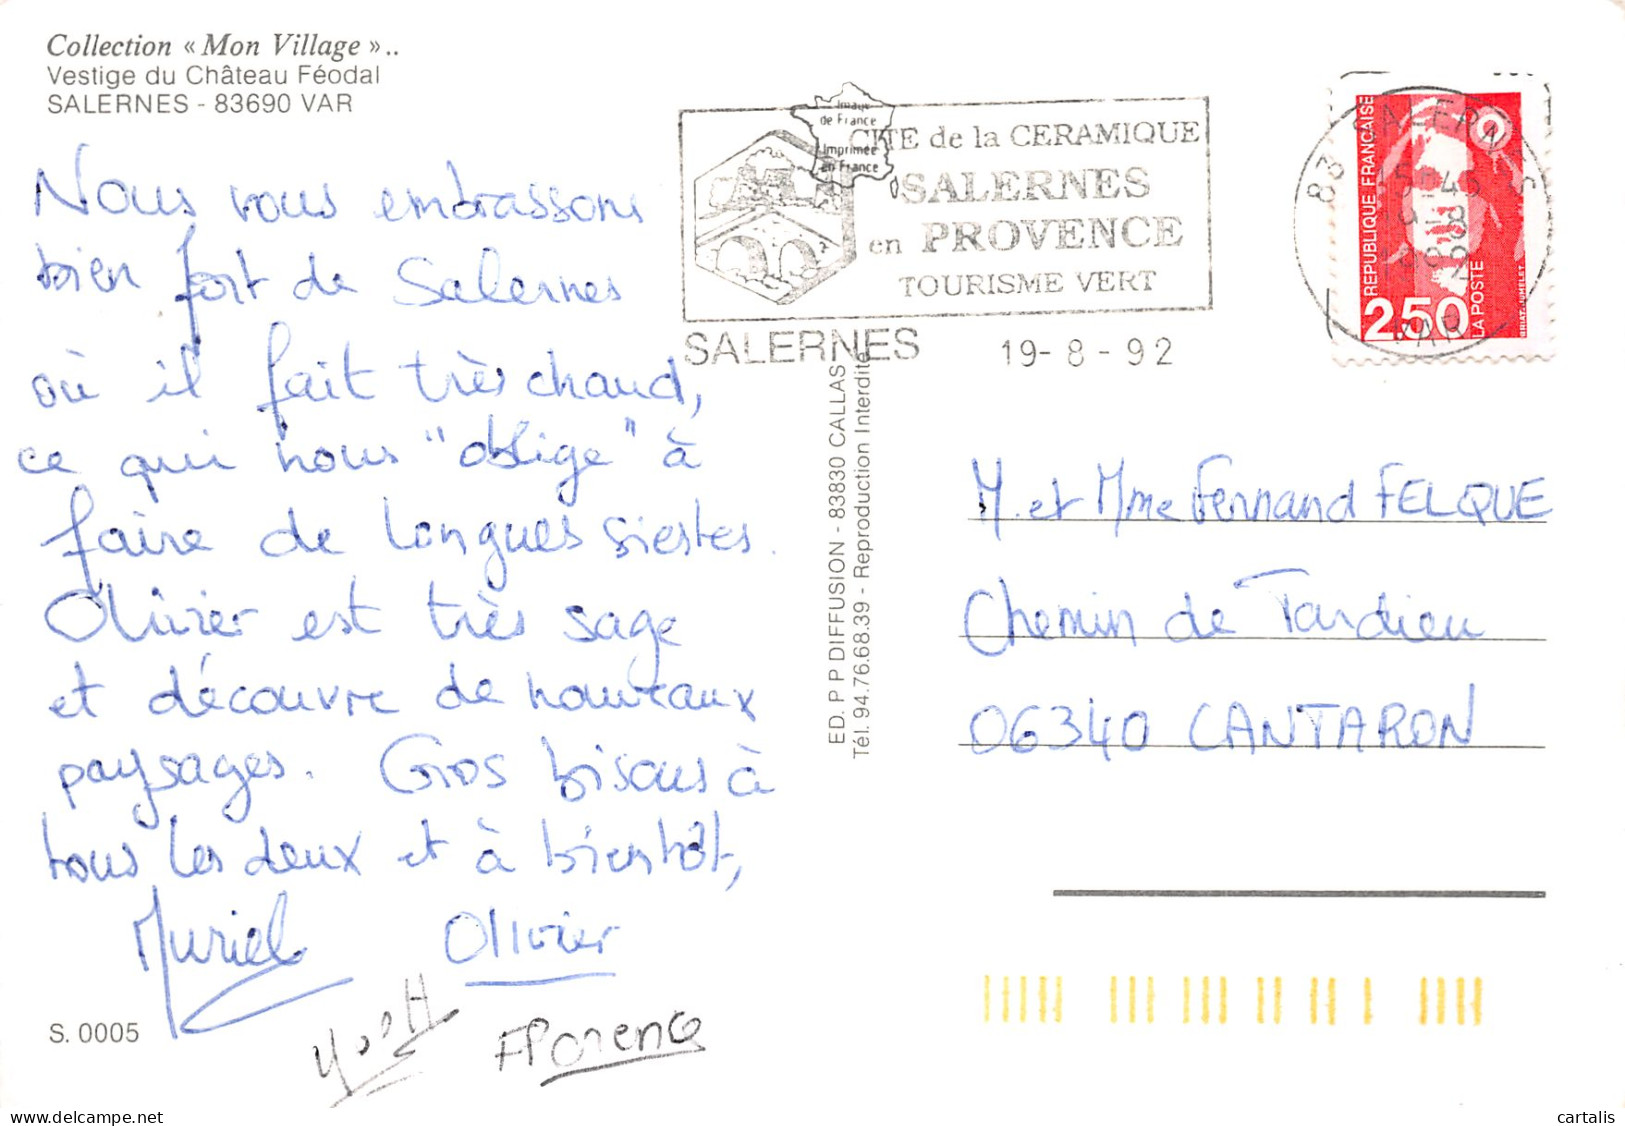 Collection « Mon Village »..
Vestige du Château Féodal
SALERNES - 83690 VAR
Nous vous embrassons
bien fort de Salernes
où il fait très chaud,
ce qui nous "oblige" à
faire de longues siestes.
Olivier est très sage
et découvre de nouveaux
paysages. Gros bisous à
tous les deux et à bientôt,
Muriel Olivier
Florence
S. 0005
Image
de France
Imprimée
en France
CITE de la CERAMIQUE
SALERNES
en PROVENCE
TOURISME VERT
SALERNES 19-8-92
83 SALERNES
VAR
REPUBLIQUE FRANÇAISE
2,50
LA POSTE
BRIAT-JUMELET
ED. P P DIFFUSION - 83830 CALLAS
Tél. 94.76.68.39 - Reproduction Interdite
M. et Mme Fernand FELQUE
Chemin de Tardieu
06340 CANTARON
delcampe.net
cartalis